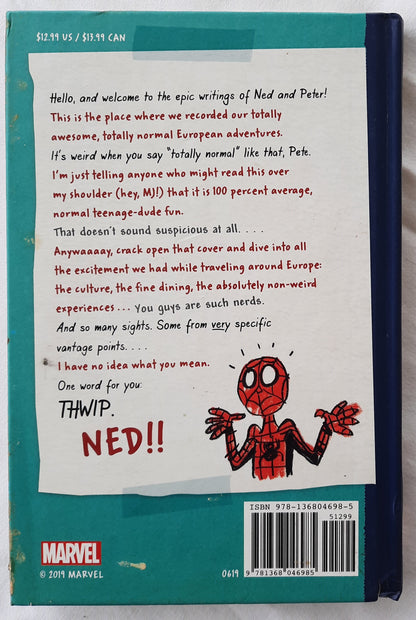 $12.99 US / $13.99 CAN
Hello, and welcome to the epic writings of Ned and Peter!
This is the place where we recorded our totally
awesome, totally normal European adventures.
It's weird when you say "totally normal" like that, Pete.
I'm just telling anyone who might read this over
my shoulder (hey, MJ!) that it is 100 percent average,
normal teenage-dude fun.
That doesn't sound suspicious at all. . . .
Anywaaaay, crack open that cover and dive into all
the excitement we had while traveling around Europe:
the culture, the fine dining, the absolutely non-weird
experiences . . . You guys are such nerds.
And so many sights. Some from very specific
vantage points. . . .
I have no idea what you mean.
One word for you:
THWIP.
NED!!
ISBN 978-136804698-5
51299
9 781368 046985
0619
MARVEL
© 2019 MARVEL